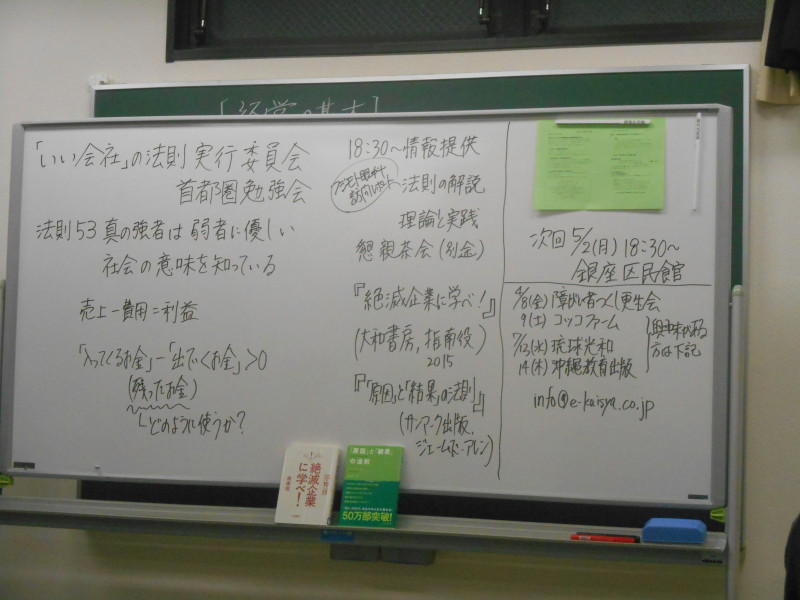 「経営の基本」
「いい会社」の法則 実行委員会
首都圏勉強会
法則53 真の強者は弱者に優しい
社会の意味を知っている
売上－費用＝利益
「入ってくるお金」－「出ていくお金」>0
(残ったお金)
どのように使うか？
18:30～情報提供
法則の解説
理論と実践
懇親茶会(別金)
『絶滅企業に学べ！』
(大和書房、指南役)
2015
『「原因」と「結果」の法則』
(サンマーク出版、
ジェームズ・アレン)
次回 5/2(月) 18:30～
銀座区民館
4/8(金) 障がい者つくし更生会
9(土) コッコファーム
7/13(水) 琉球光和
14(木) 沖縄教育出版
興味がある
方は下記
info@e-kaisya.co.jp
絶滅企業
に学べ！
指南役
「原因」と「結果」
の法則
50万部突破！